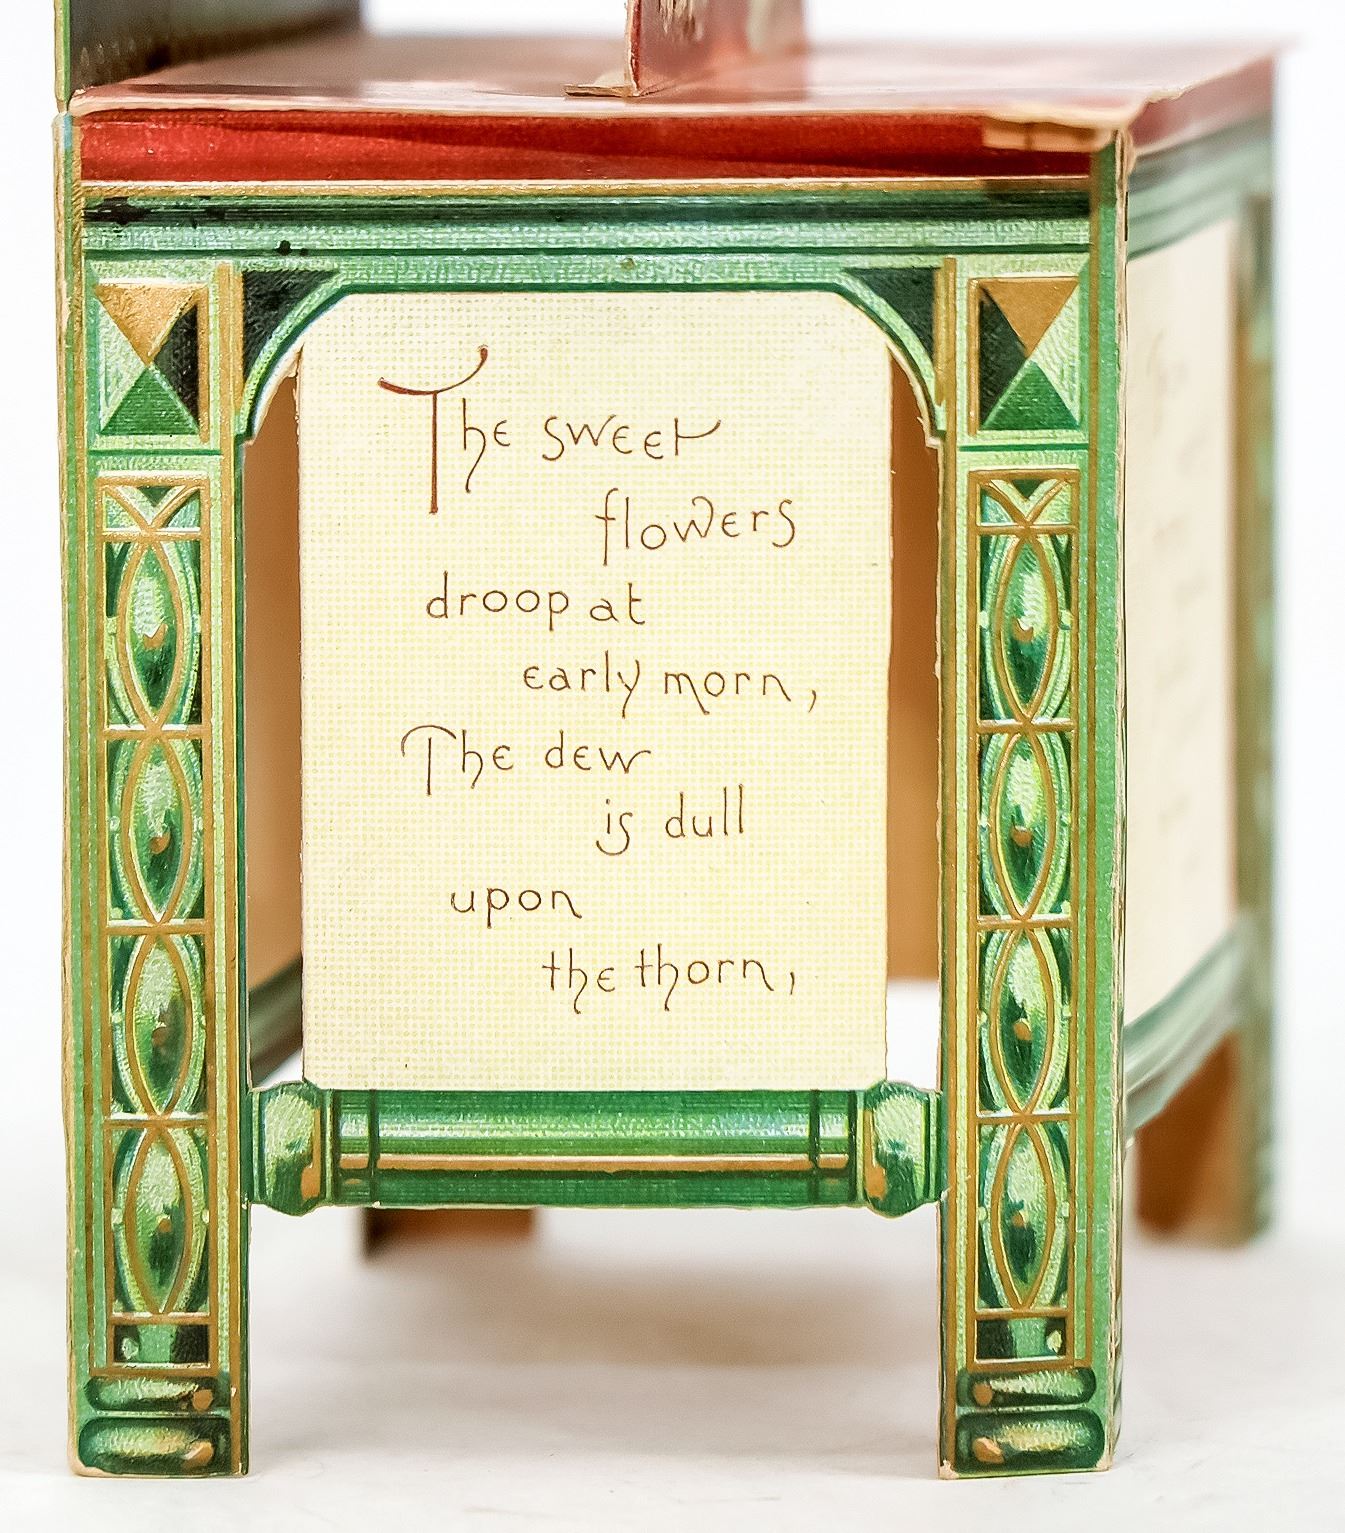 The sweet
flowers
droop at
early morn,
The dew
is dull
upon
the thorn,